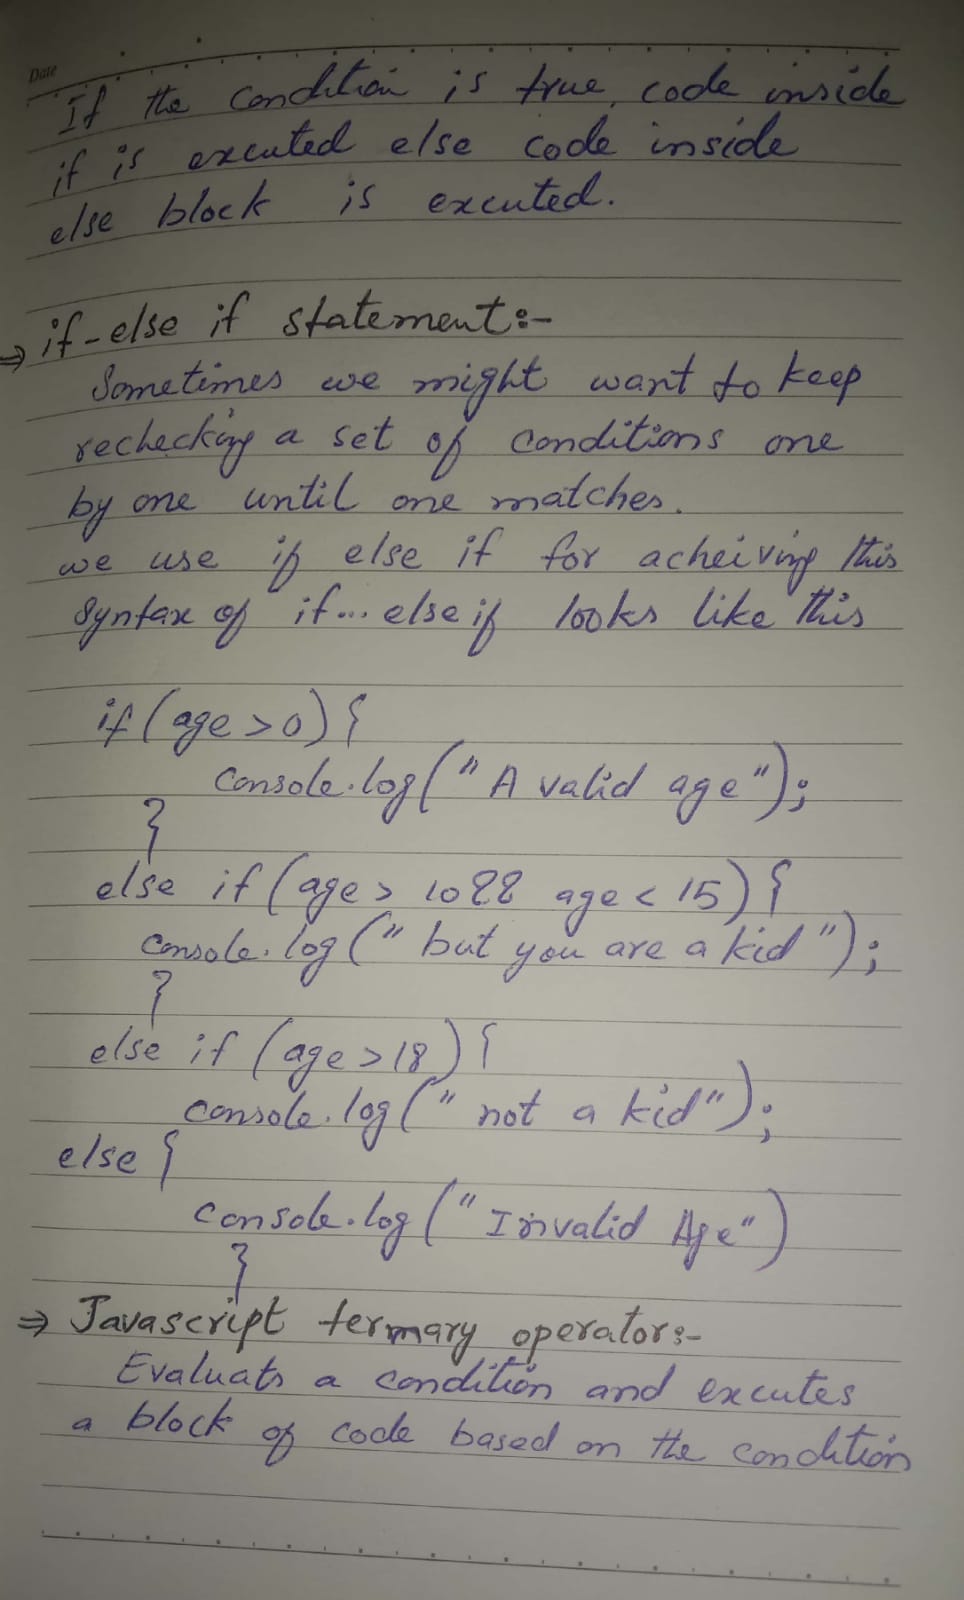 Date
If the condition is true, code inside
if is excuted else code inside
else block is excuted.
⇒ if-else if statement:-
Sometimes we might want to keep
rechecking a set of conditions one
by one until one matches.
we use if else if for acheiving this
Syntax of if... else if looks like this
if (age > 0) {
console.log(" A valid age");
}
else if (age > 10 && age < 15) {
console.log(" but you are a kid ");
}
else if (age > 18) {
console.log(" not a kid");
else {
console.log(" Invalid Age")
}
⇒ Javascript termary operator:-
Evaluats a condition and excutes
a block of code based on the condition